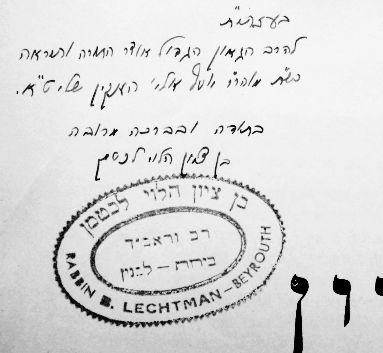 בעזהי"ת
להרב הגאון הגדול אוצר התורה והיראה
כש"ת מוהר"ר יוסף אלי' הענקין שליט"א.
בתודה ובברכה מרובה
בן ציון הלוי לכטמן
בן ציון הלוי לכטמן
רב וראב״ד
בירות – לבנון
RABBIN B. LECHTMAN – BEYROUTH